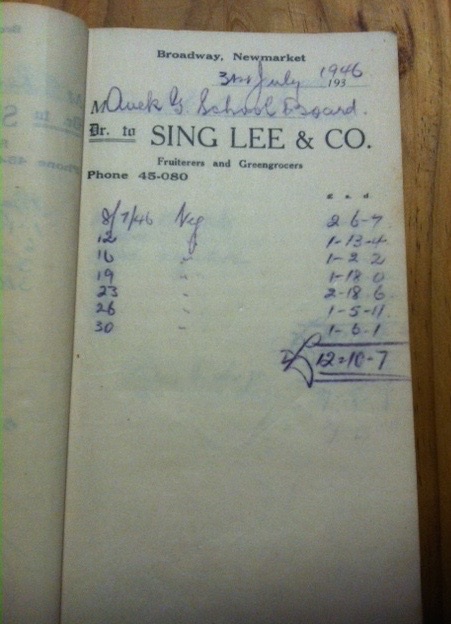 Broadway, Newmarket
31st July 1946
193
M Auck G School Board.
Dr. to SING LEE & CO.
Fruiterers and Greengrocers
Phone 45-080
£ s. d.
8/7/46 Veg 2-6-7
12 " 1-13-4
16 " 1-2-2
19 " 1-18-0
23 " 2-18-6
26 " 1-5-11
30 " 1-6-1
£ 12=10-7